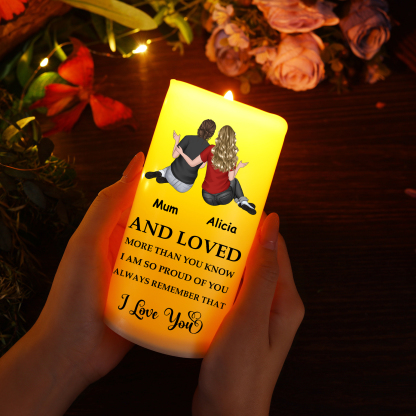 Mum Alicia
AND LOVED
MORE THAN YOU KNOW
I AM SO PROUD OF YOU
ALWAYS REMEMBER THAT
I Love You